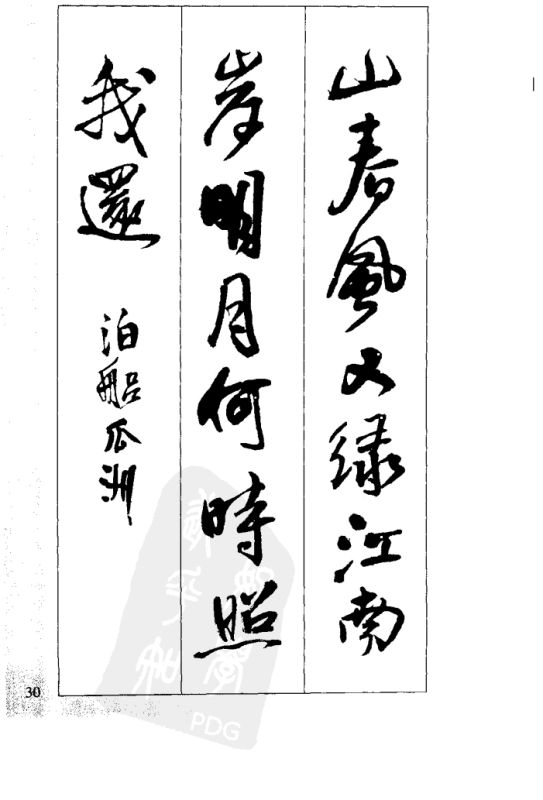 山春風又緑江南
岸明月何時照
我還
泊船瓜洲
30
PDG